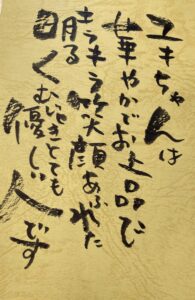 ユキちゃんは
華やかでお上品で
キラキラで笑顔あふれた
明る
くむじゃきとても
優しい人です